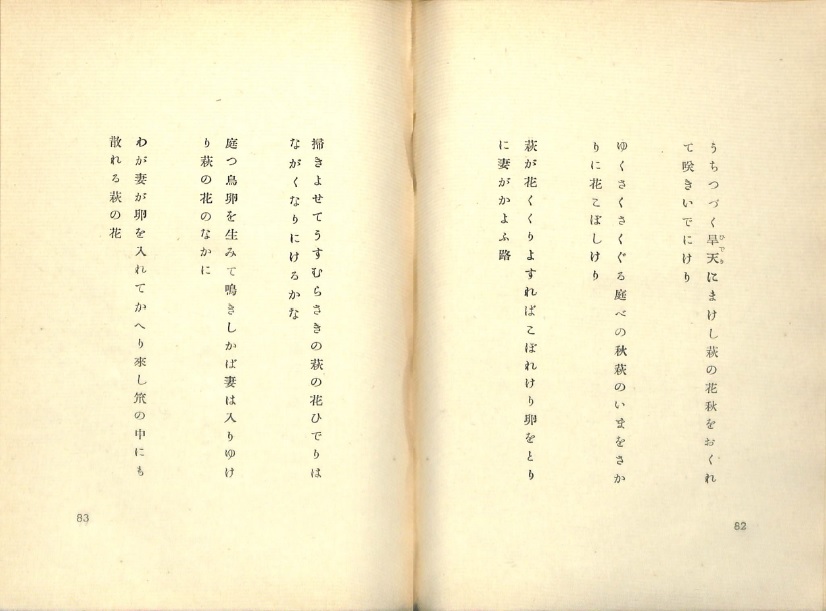 うちつづく旱天にまけし萩の花秋をおくれ
て咲きいでにけり
ゆくさくさくぐる庭べの秋萩のいまをさか
りに花こぼしけり
萩が花くくりよすればこぼれけり卵をとり
に妻がかよふ路
82
掃きよせてうすむらさきの萩の花ひでりは
ながくなりにけるかな
庭つ鳥卵を生みて鳴きしかば妻は入りゆけ
り萩の花のなかに
わが妻が卵を入れてかへり來し笊の中にも
散れる萩の花
83